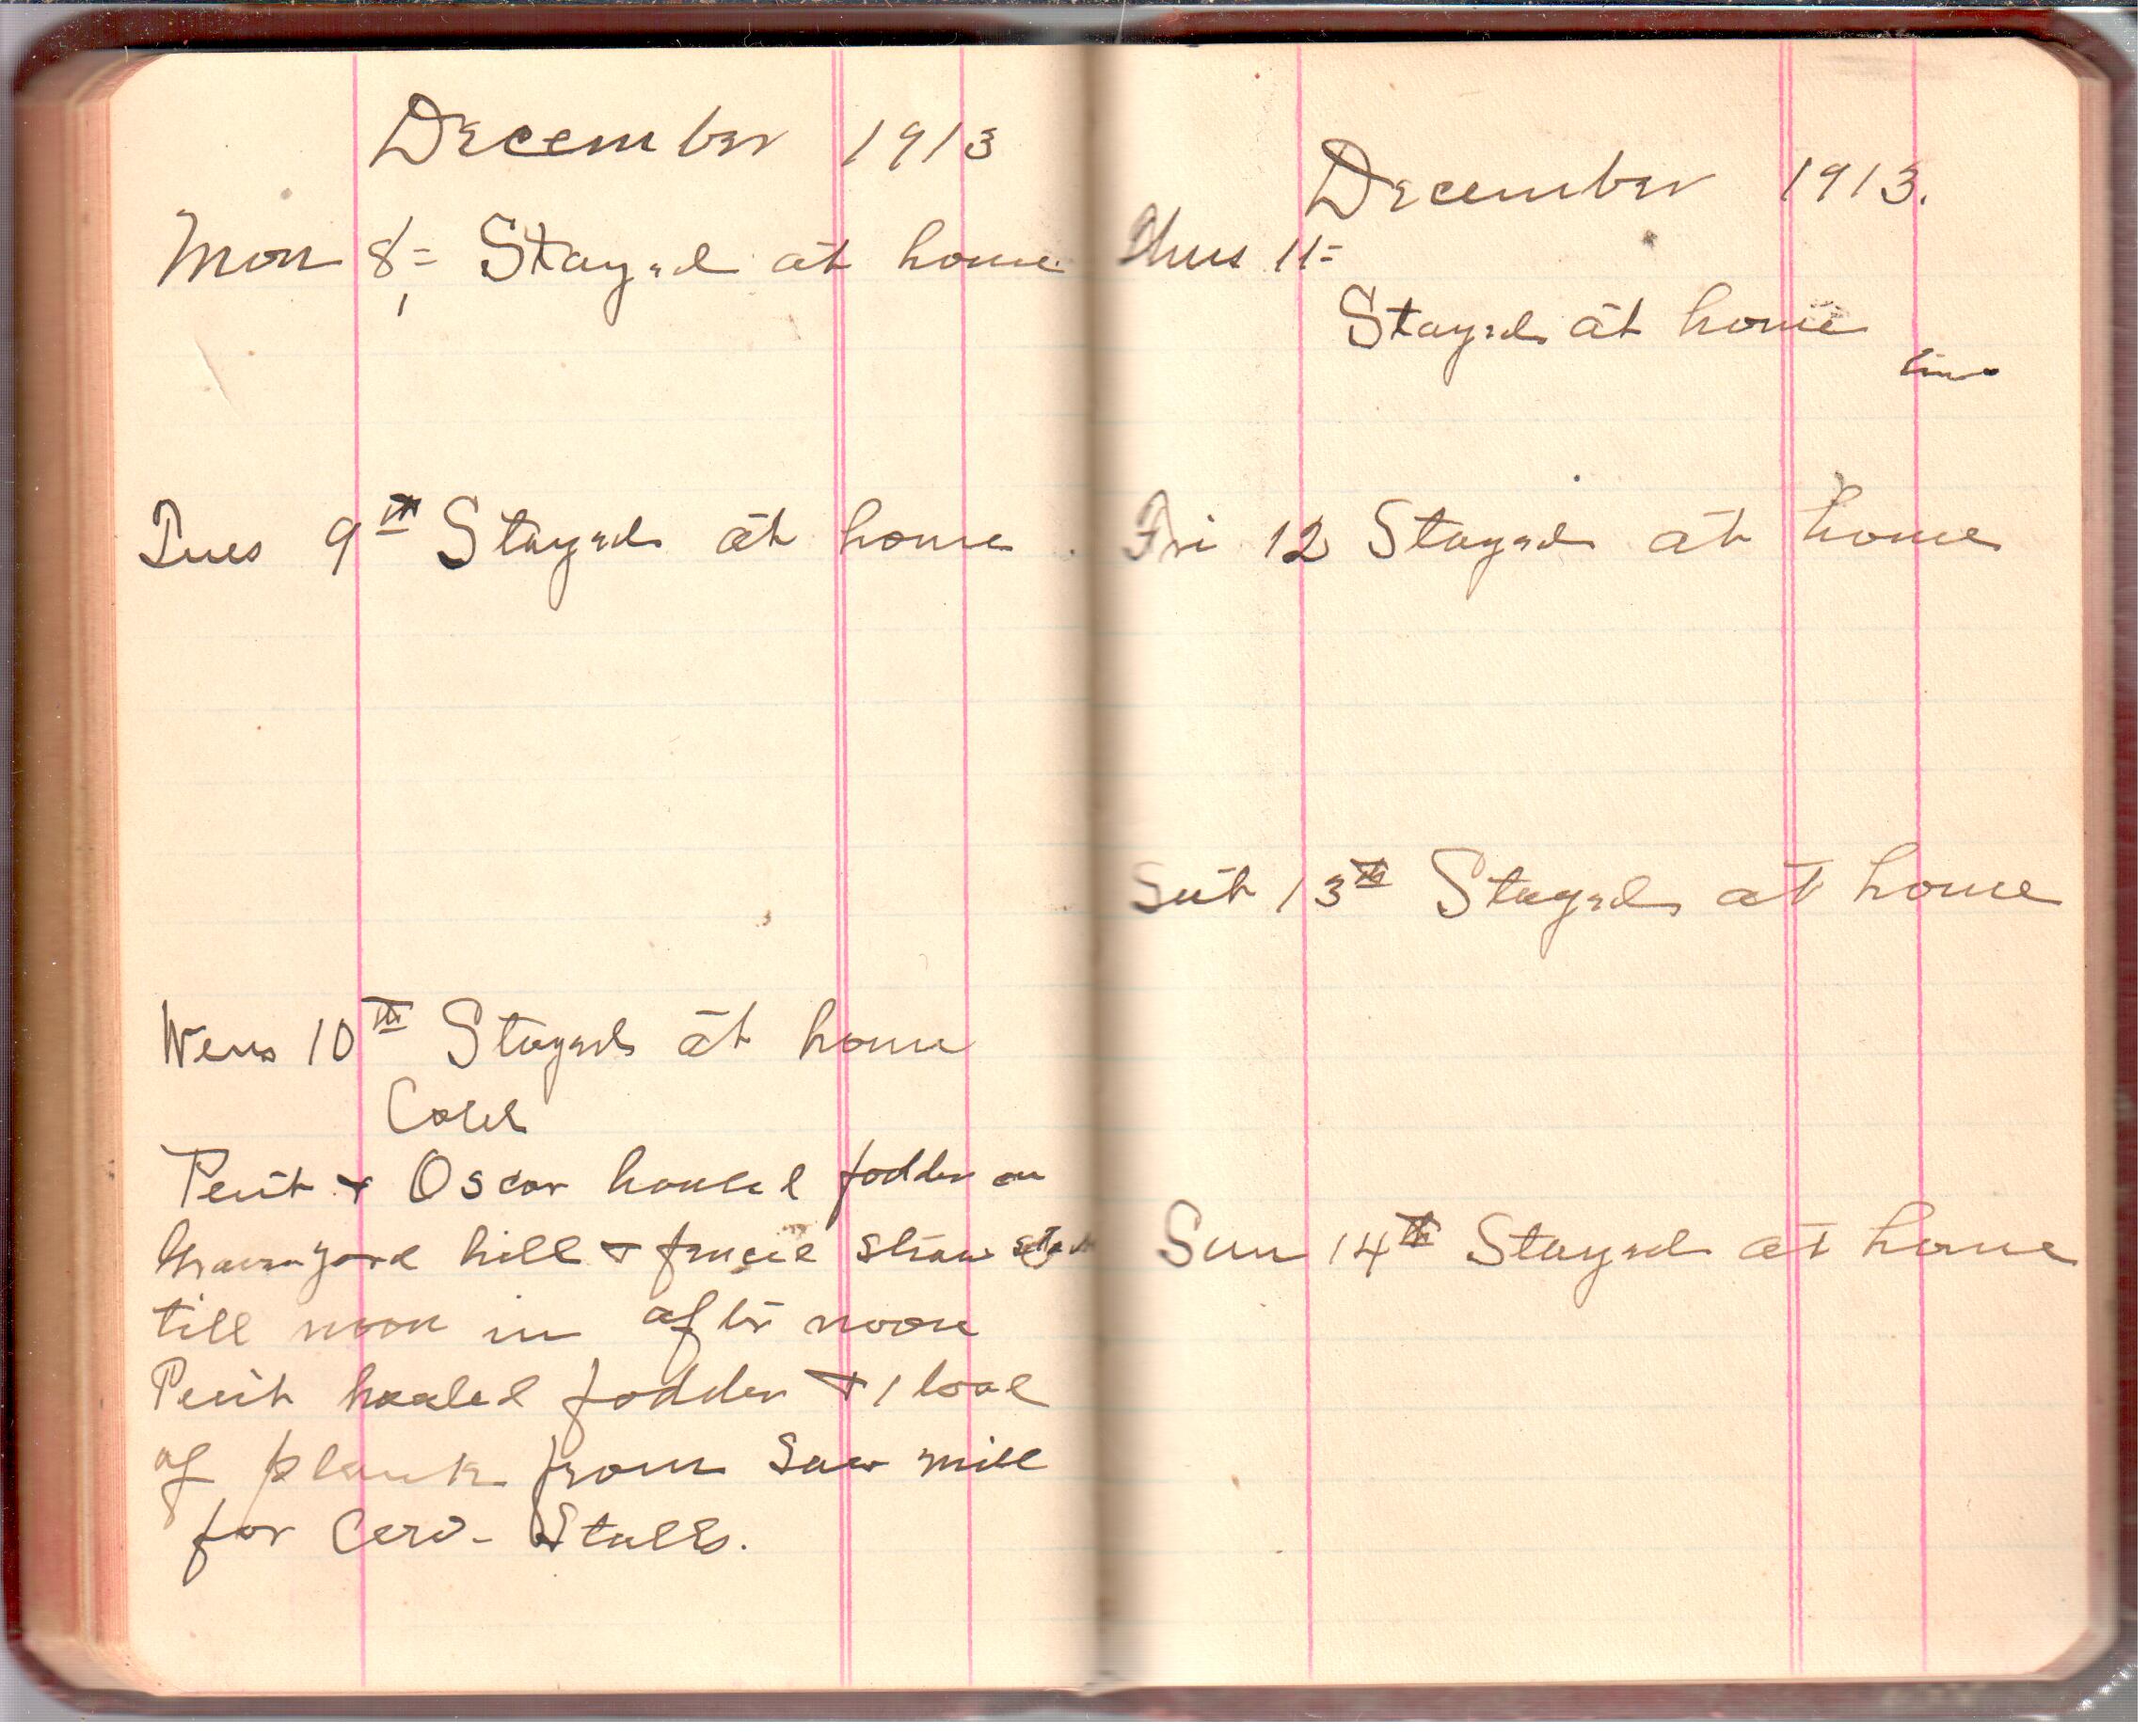 December 1913
Mon 8= Stayed at home
Tues 9th Stayed at home
Wens 10th Stayed at home
Cold
& Oscar hauled fodder on
Graveyard hill & fenced straw
till noon in after noon
hauled fodder & 1 load
of plank from Saw mill
for Cow- Stalls.
December 1913.
Thurs 11=
Stayed at home
Fri 12 Stayed at home
Sat 13th Stayed at home
Sun 14th Stayed at home